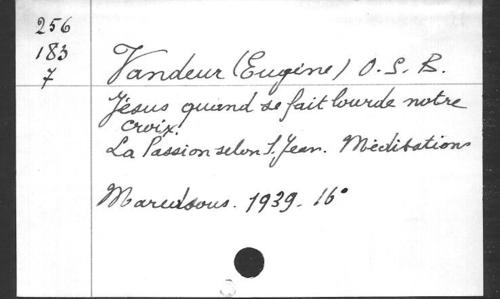 256
183
7
Vandeur (Eugène) O. S. B.
Jésus quand se fait lourde notre
croix!
La Passion selon S. Jean. Méditations
Maredsous. 1939. 16°